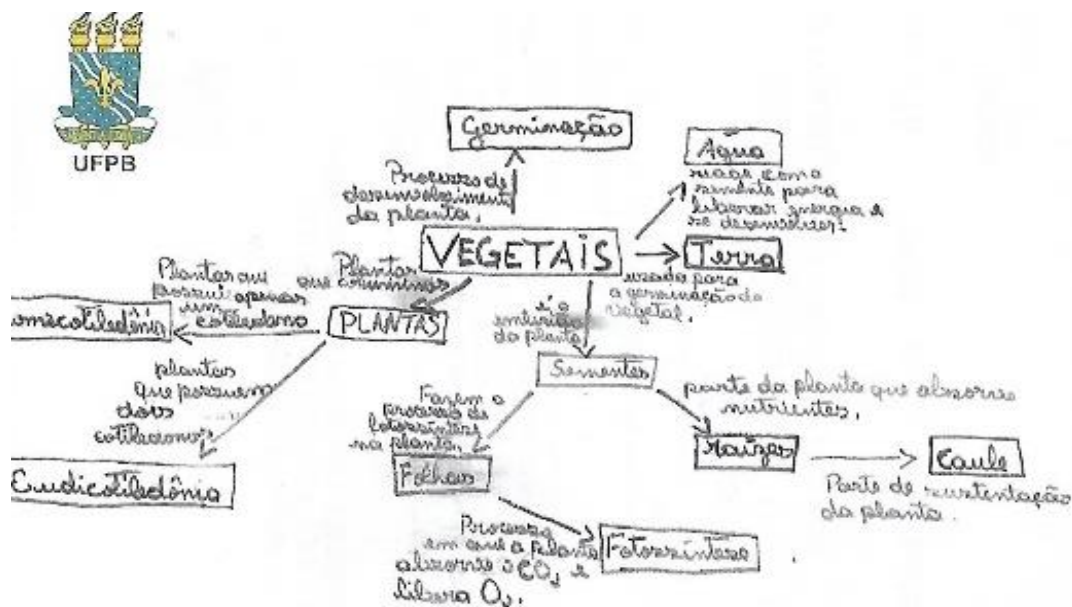 UFPB
Germinação
Processo de
desenvolvimento
da planta.
Água
reage com a
semente para
liberar energia e
se desenvolver.
VEGETAIS
Terra
usada para
a germinação do
vegetal.
Plantas
que
PLANTAS
Plantas que
possui apenas
um
cotiledono
plantas
que possuem
dois
cotiledonos
Eudicotiledônia
é o
embrião
da planta
Sementes
Fazem o
processo de
fotossíntese
na planta.
Folhas
parte da planta que absorve
nutrientes.
Raízes
Caule
Parte de sustentação
da planta.
Processo
em que a planta
absorve CO₂ e
libera O₂.
Fotossíntese